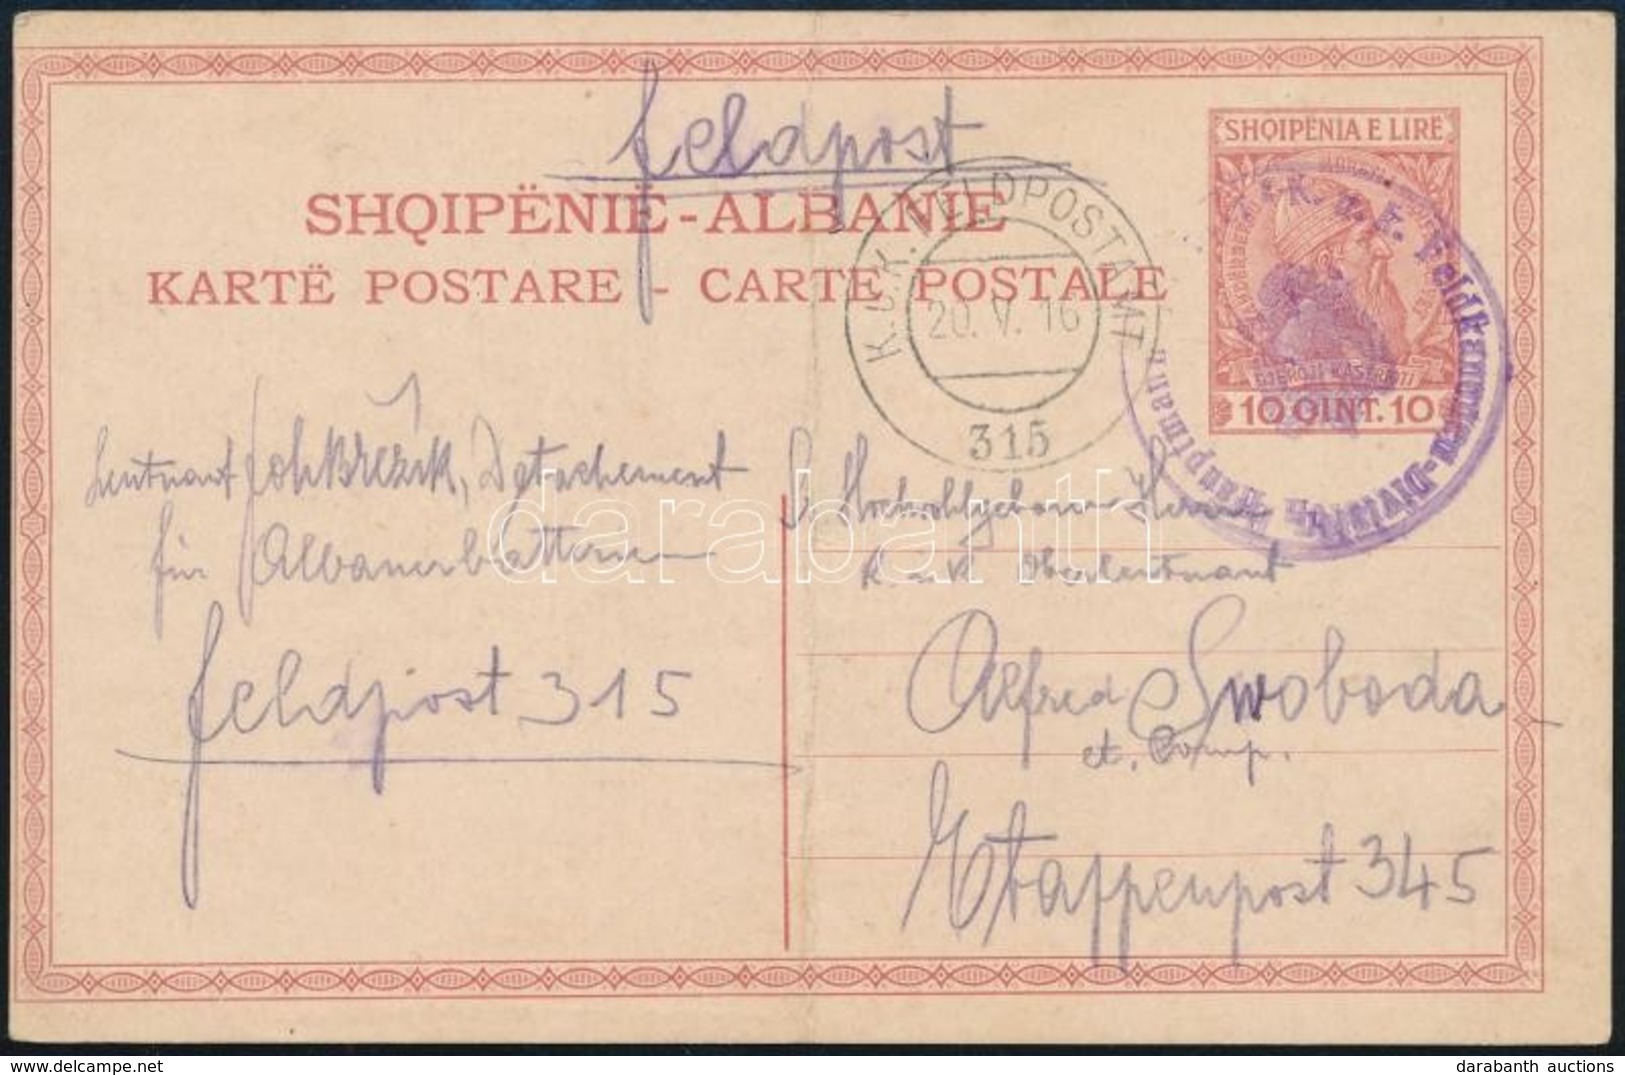 Feldpost
SHQIPËNIË - ALBANIE
KARTË POSTARE - CARTE POSTALE
SHQIPËNIA E LIRË
GJERGJ KASTRIOTI
10 QINT. 10
K. u. K. FELDPOSTAMT
20. V. 16
315
K. u. k. Feldkanonen-Division
Hauptmann
Leutnant Joh Březik, Detachement
für Albanerblattern
Feldpost 315
S. Hochwohlgeboren Herrn
K. u. K. Oberleutnant
Alfred Swoboda
et. Comp.
Etappenpost 345
darabanth
darabanth auctions